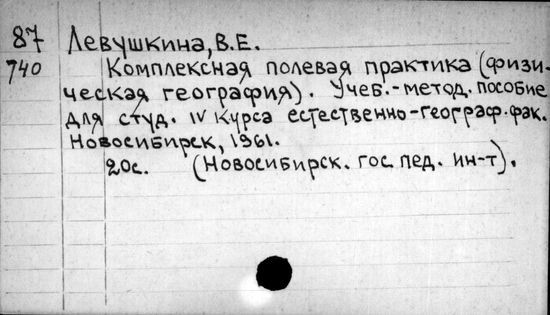 87 Левушкина, В.Е.
740 Комплексная полевая практика (физи-
ческая география). Учеб.-метод. пособие
для студ. IV курса естественно-географ. фак.
Новосибирск, 1961.
20с. (Новосибирск. гос. пед. ин-т).